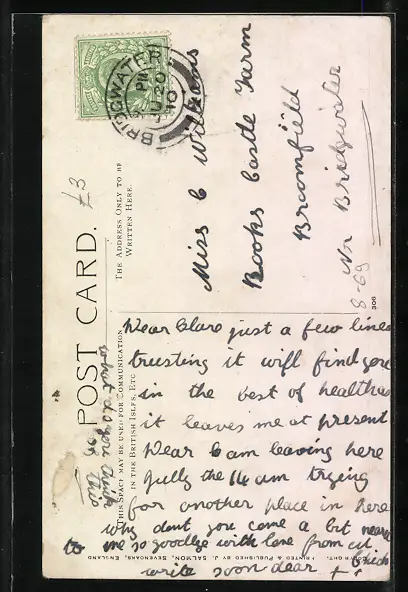 POST CARD.
THE ADDRESS ONLY TO BE
WRITTEN HERE.
THIS SPACE MAY BE USED FOR COMMUNICATION
IN THE BRITISH ISLES, ETC
BRIDGWATER
PM
JU 20
10
£3
Miss C Williams
Books Castle Farm
Broomfield
Nr Bridgwater
8-69
306
Dear Clare just a few lines
trusting it will find you
in the best of health as
it leaves me at present
Dear I am leaving here
july the 14 am trying
for another place in here
why dont you come a bit near
to me so goodbye with love from
write soon dear + +
what do you think
of this
COPYRIGHT. PRINTED & PUBLISHED BY J. SALMON, SEVENOAKS, ENGLAND